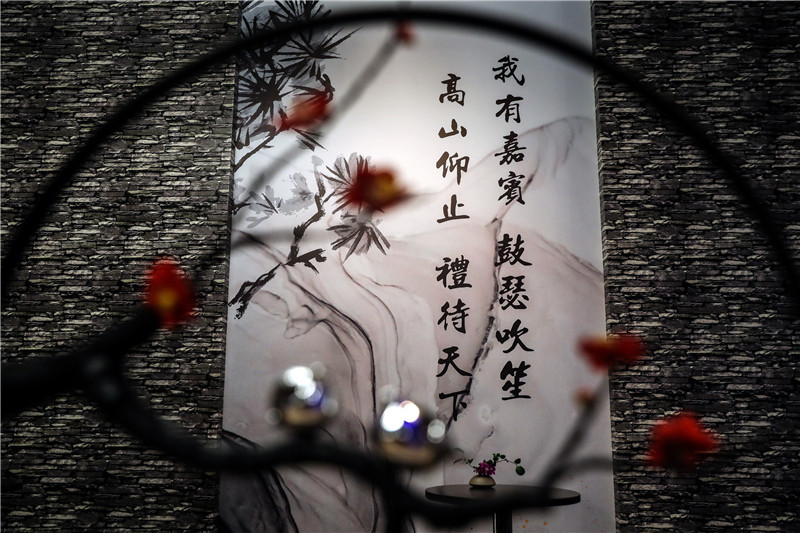 我有嘉賓 鼓瑟吹笙
高山仰止 禮待天下